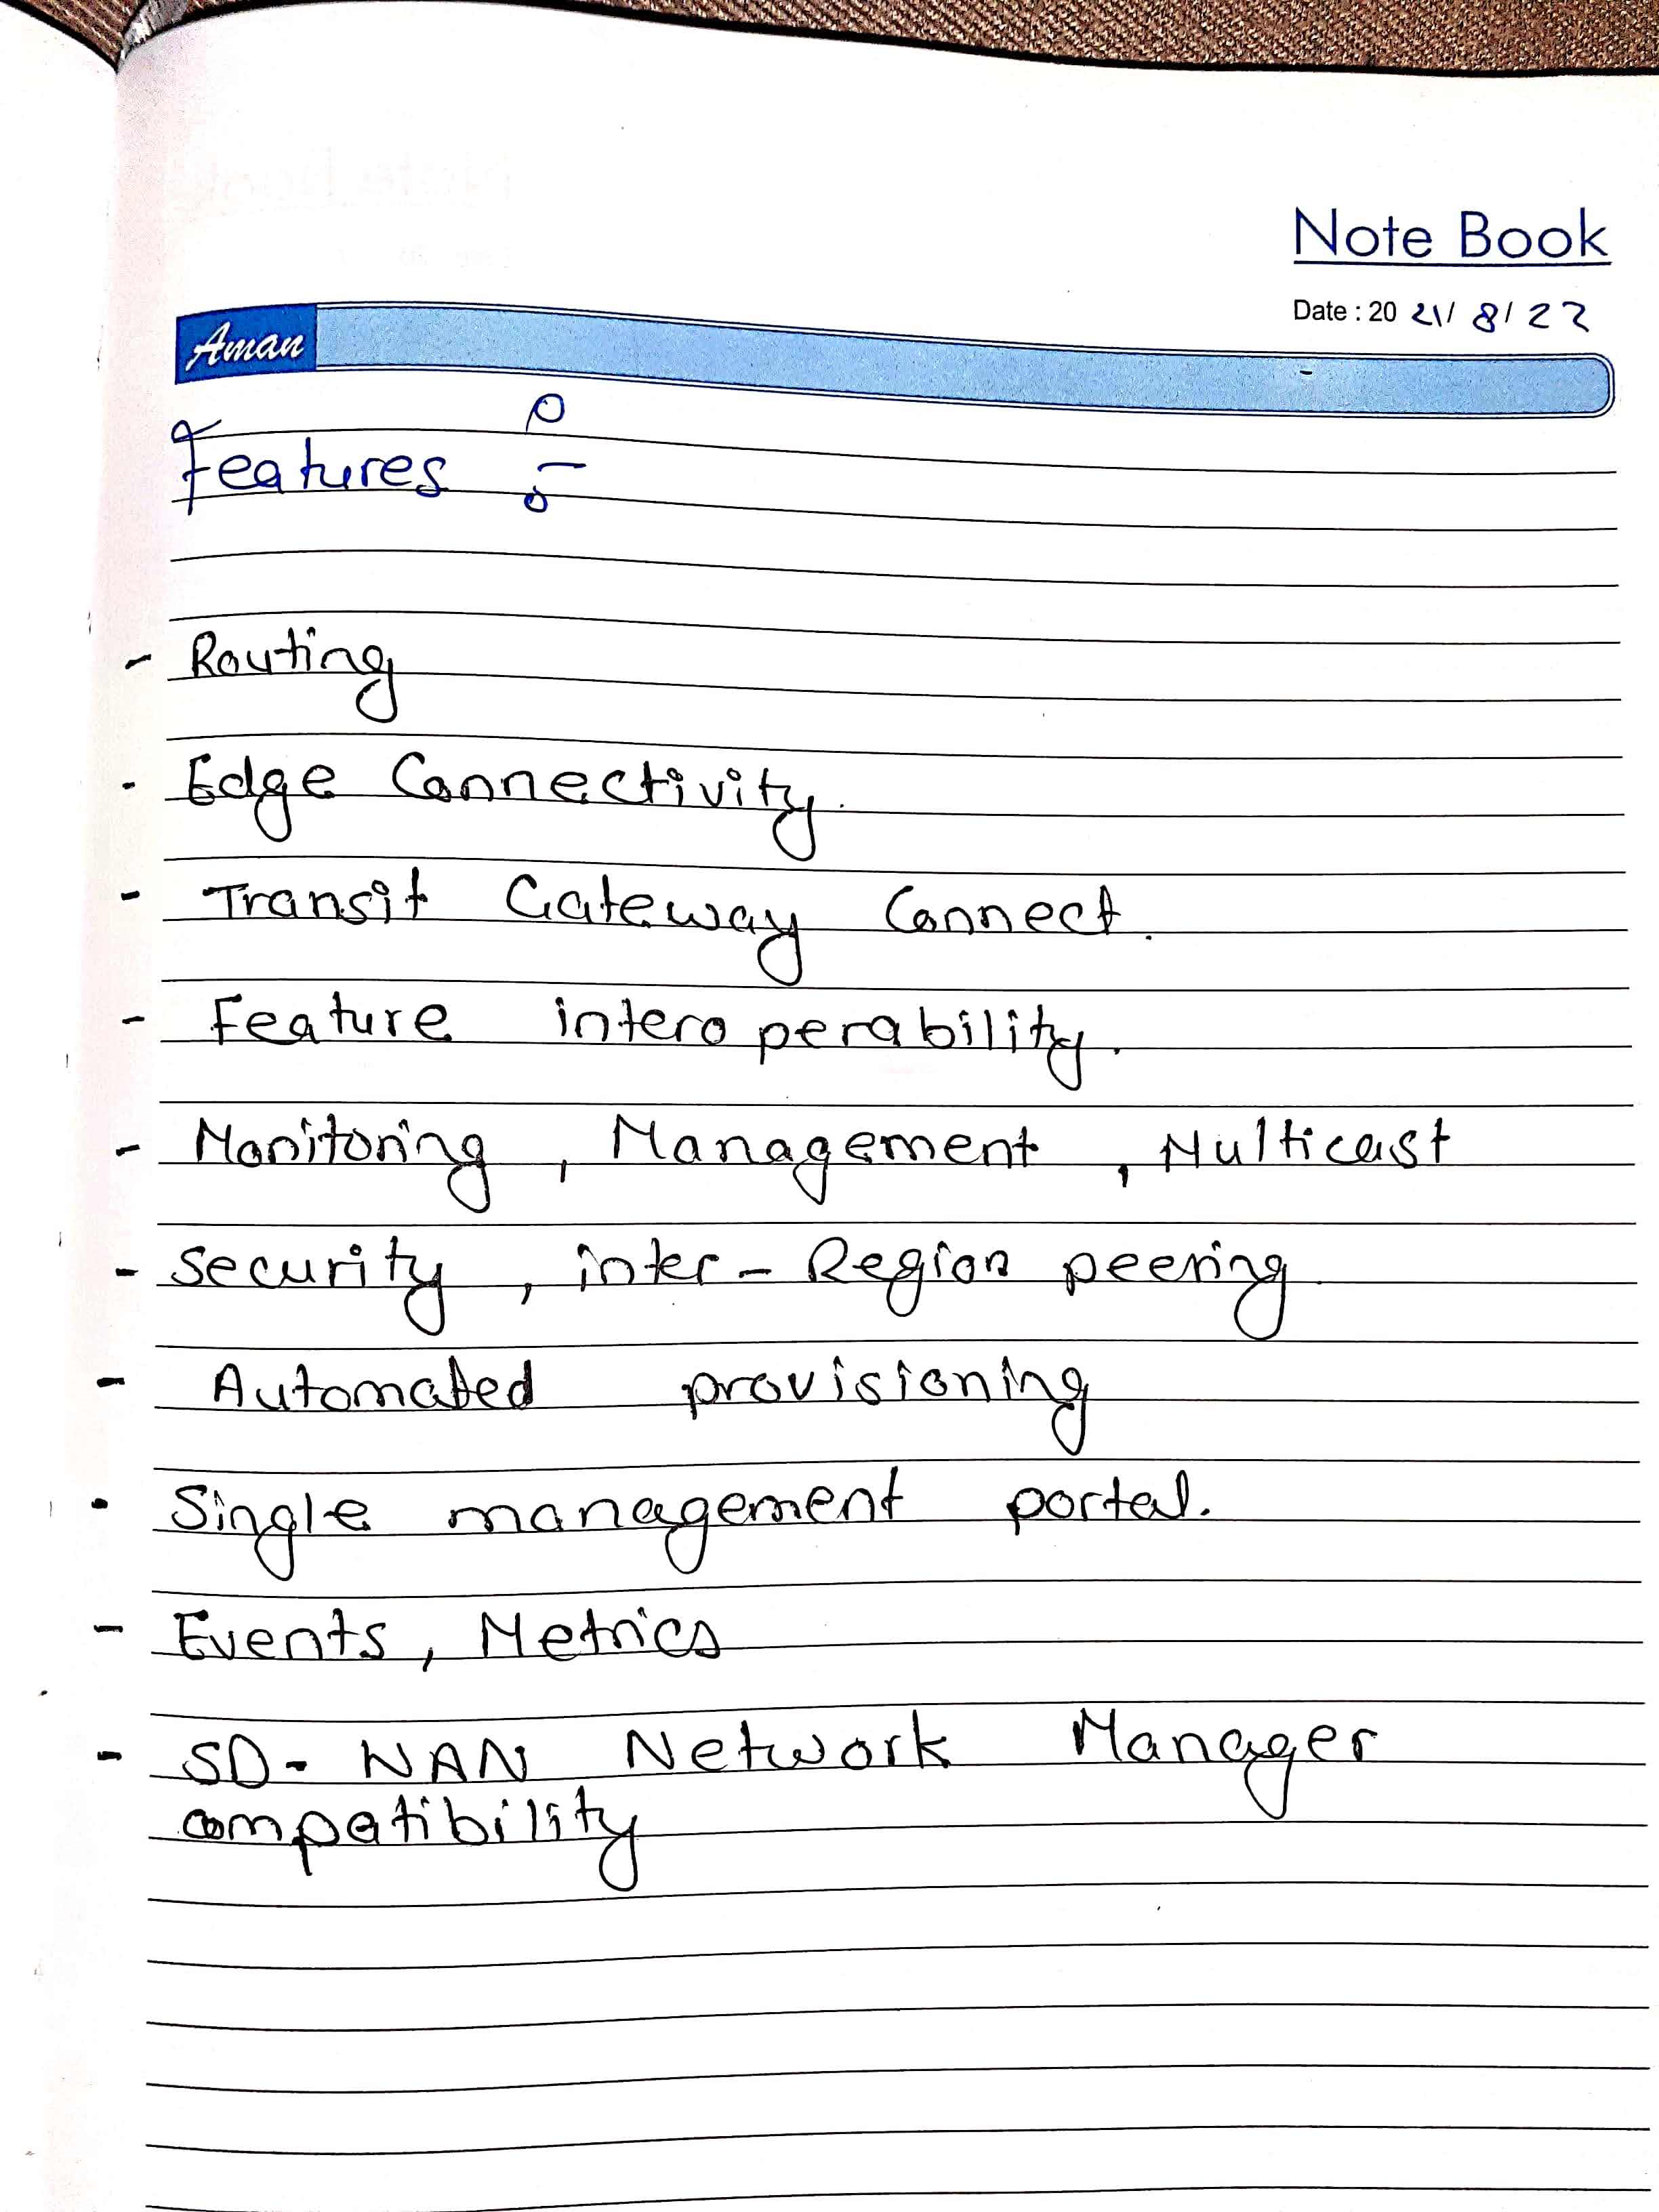 Note Book
Date : 20 21/ 8/ 22
Aman
Features :-
- Routing
- Edge Connectivity.
- Transit Gateway Connect.
- Feature interoperability.
- Monitoring, Management, Multicast
- Security, inter-Region peering
- Automated provisioning
- Single management portal.
- Events, Metrics
- SD-WAN Network Manager
compatibility